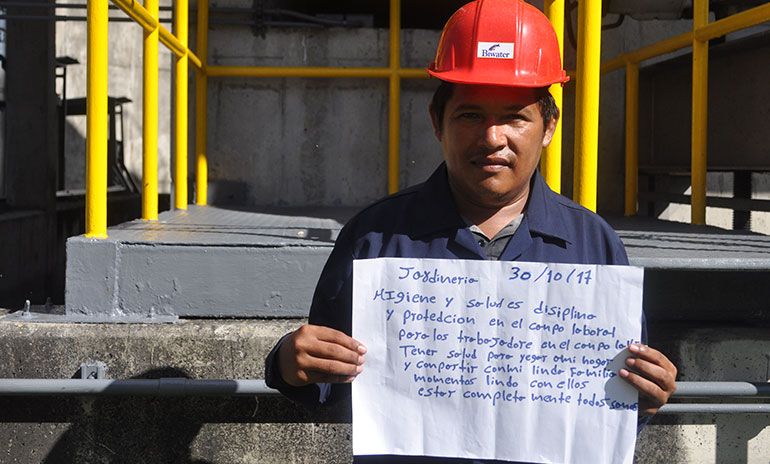 Biwater
Jardineria 30/10/17
HIgiene y salud es disiplina
y protedcion en el canpo laboral
para los trabajadore en el canpo
Tener salud para yegar ami hogar
y conpartir conmi linda Familia
momentos lindo con ellos
estar completa mente todos sanos